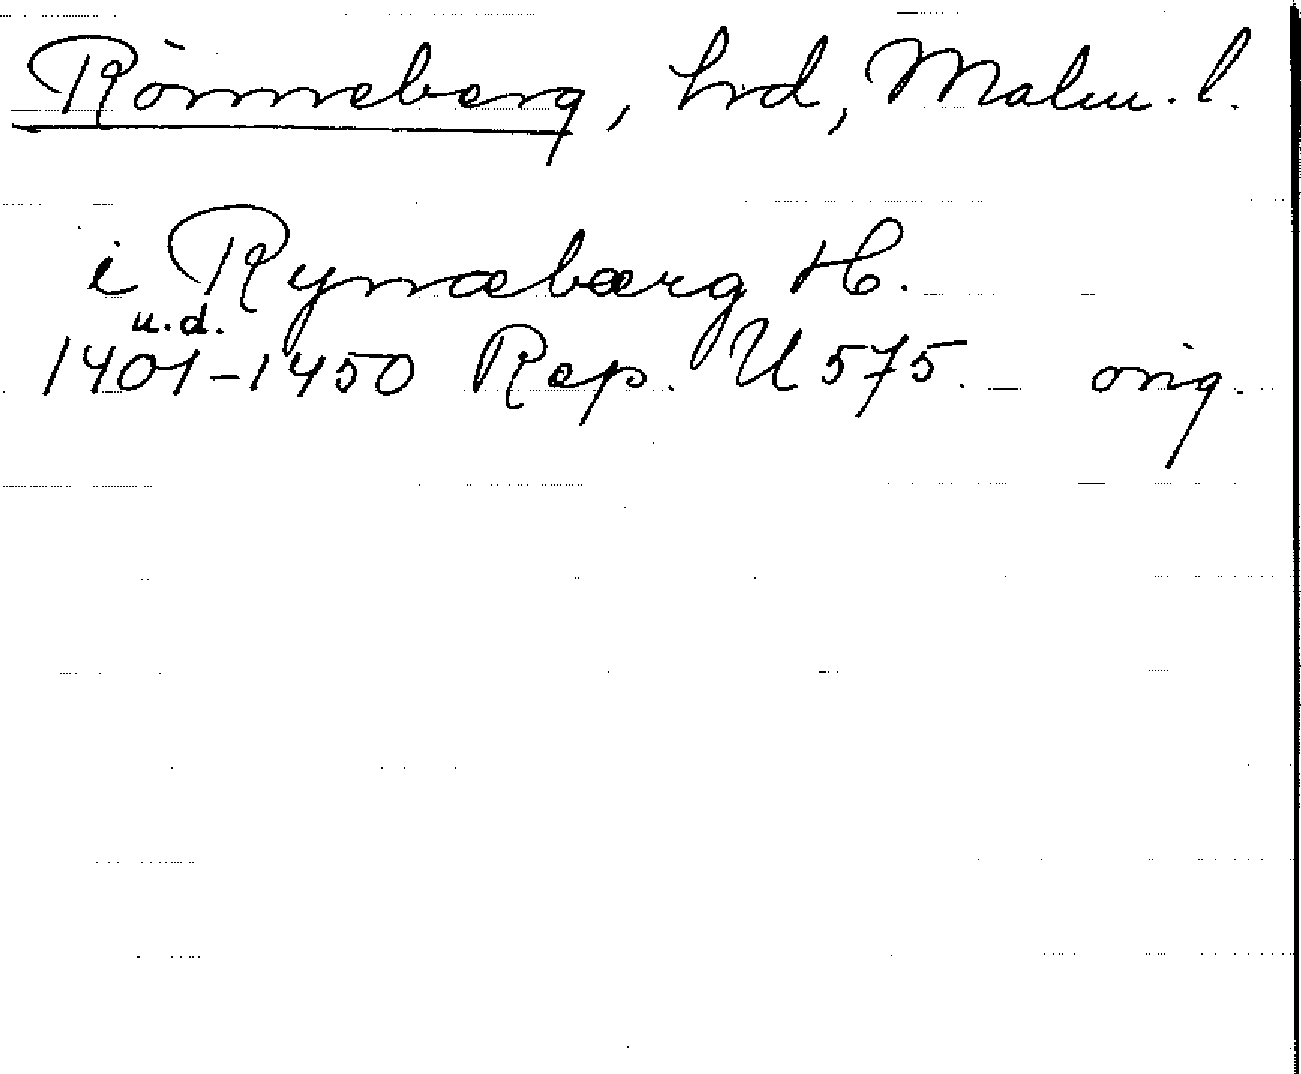 Rönneberg, hrd, Malm. l.
i Rynæbærg H.
u.d.
1401-1450 Rep. U 575. — orig.